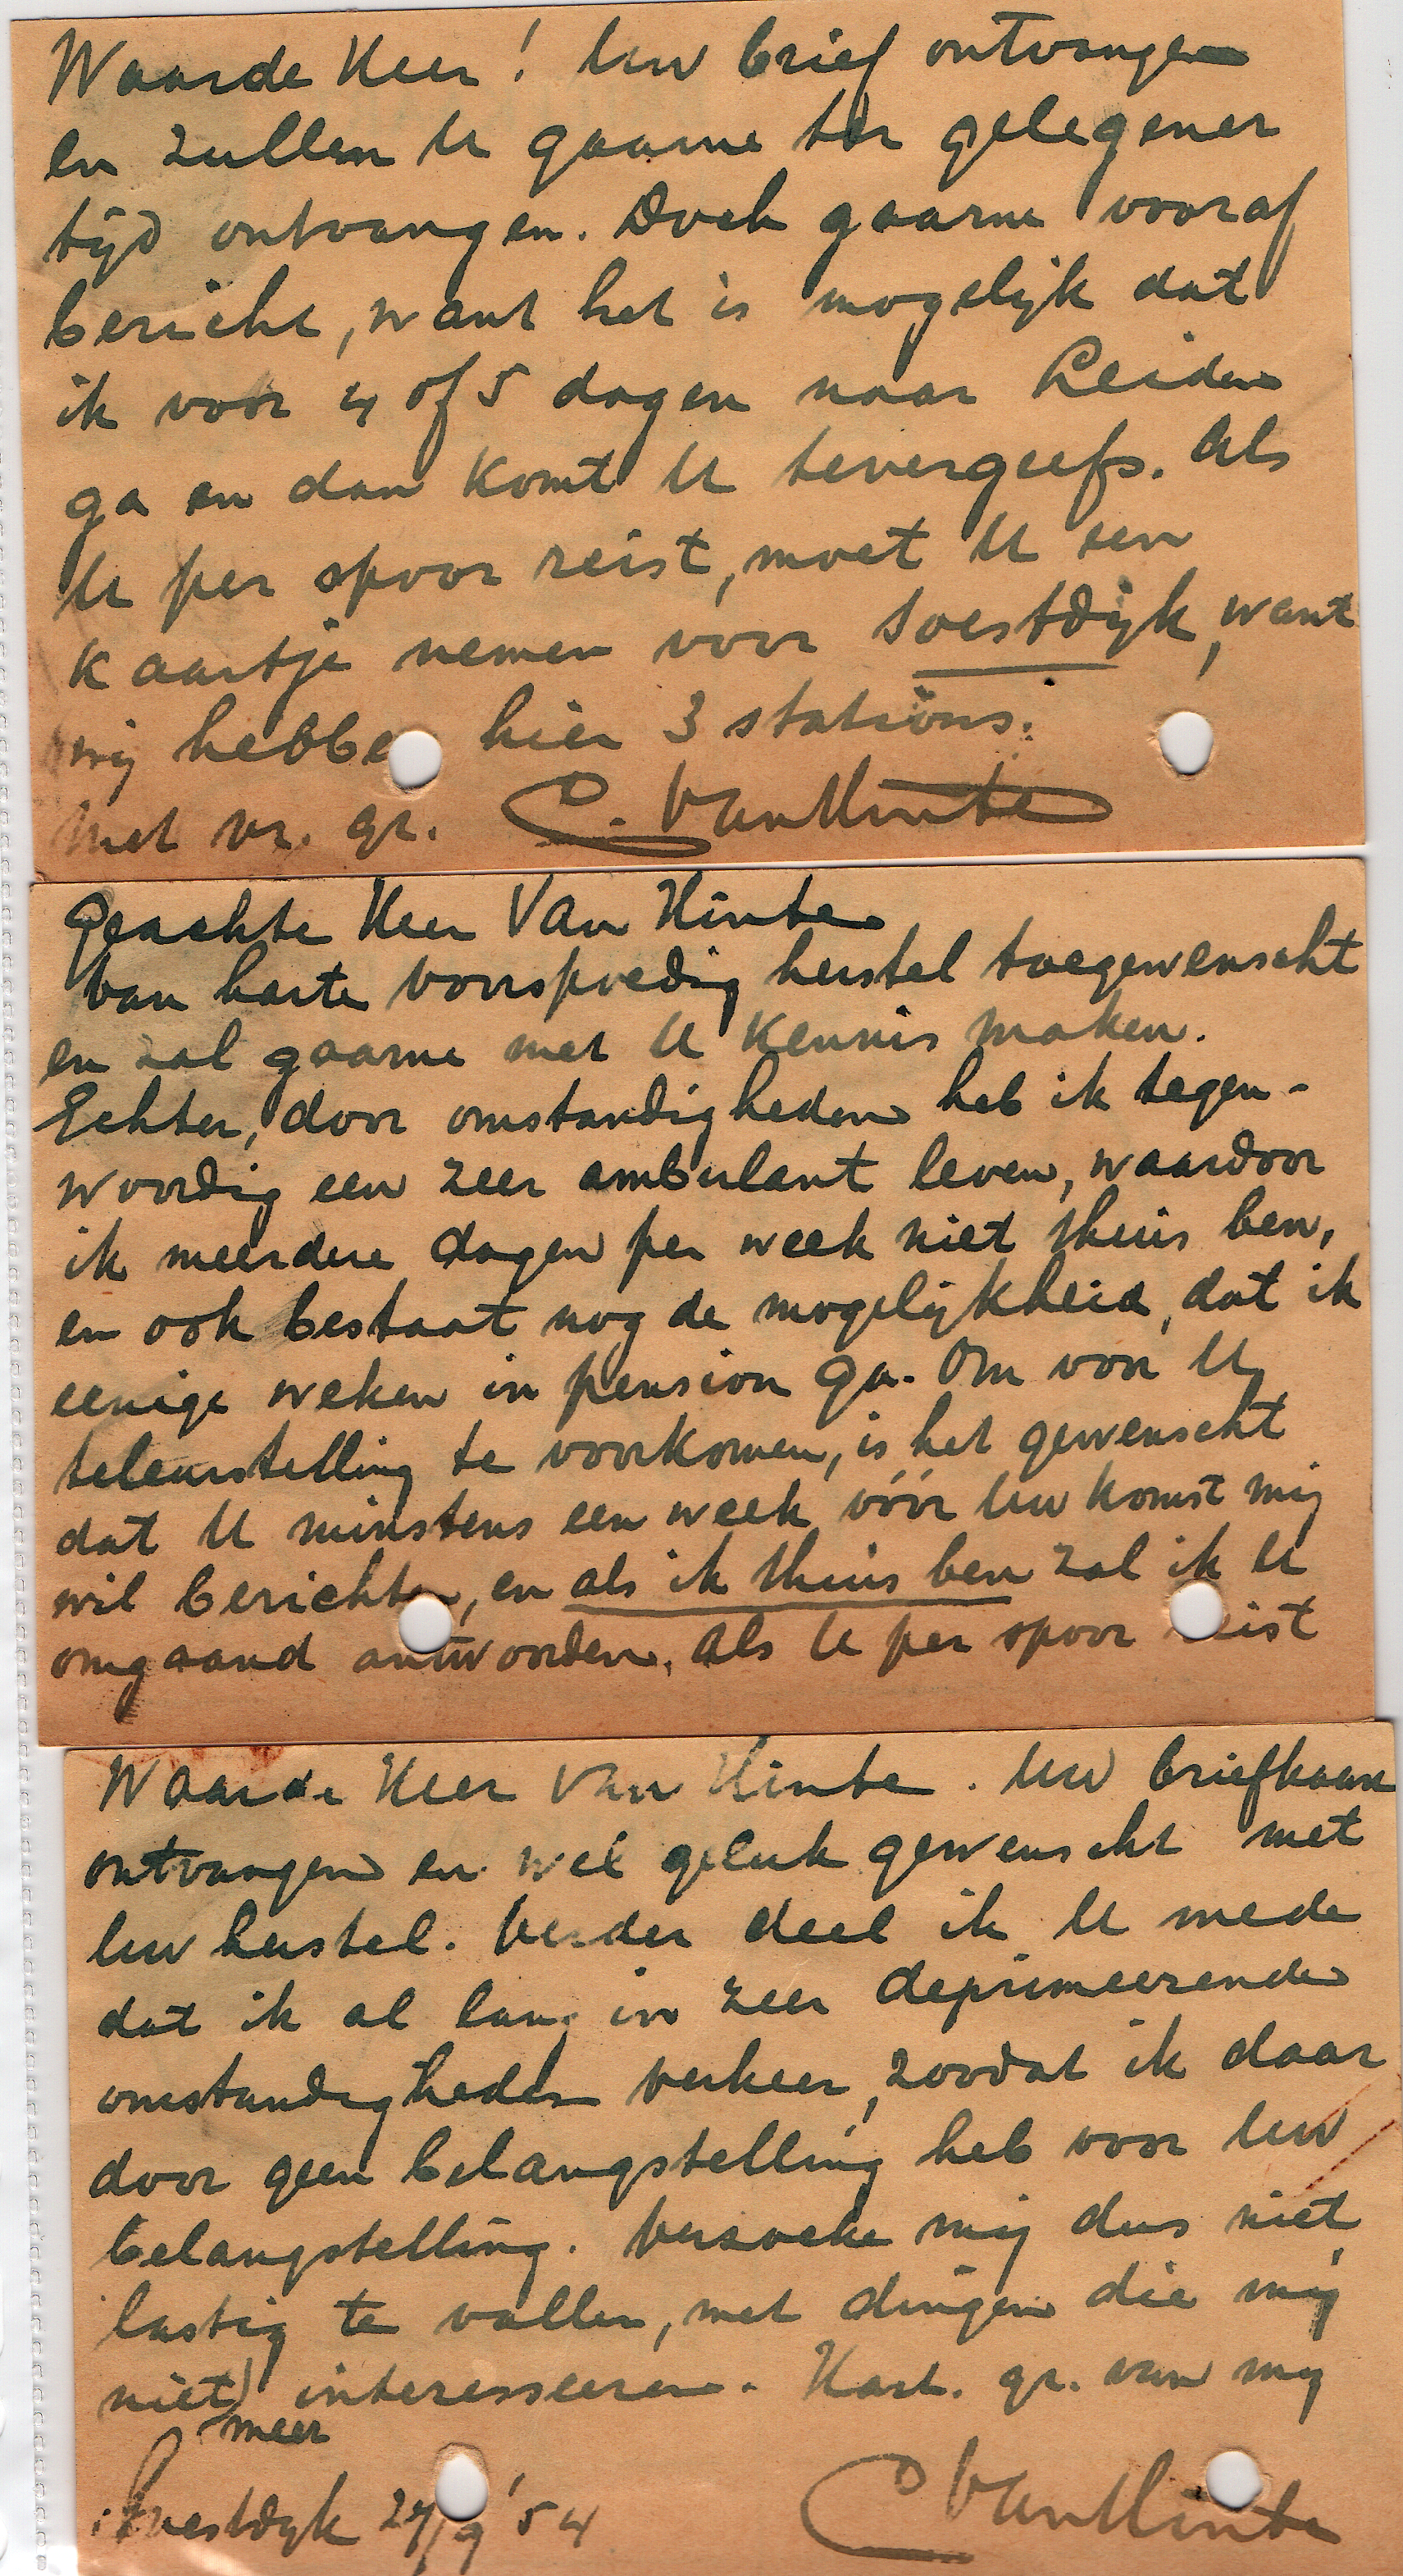 Waarde Heer! Uw brief ontvangen
en zullen U gaarne ter gelegener
tijd ontvangen. Doch gaarne vooraf
bericht, want het is mogelijk dat
ik voor 4 of 5 dagen naar Leiden
ga en dan komt U tevergeefs. Als
U per spoor reist, moet U een
kaartje nemen voor Soestdijk, want
wij hebben hier 3 stations.
Met vr. gr. C. Van Hinte
Geachte Heer Van Hinte
Van harte voorspoedig herstel toegewenscht
en zal gaarne met U kennis maken.
Echter, door omstandigheden heb ik tegen-
woordig een zeer ambulant leven, waardoor
ik meerdere dagen per week niet thuis ben,
en ook bestaat nog de mogelijkheid, dat ik
eenige weken in pension ga. Om voor U
teleurstelling te voorkomen, is het gewenscht
dat U minstens een week vóór Uw komst mij
wil berichten, en als ik thuis ben zal ik U
omgaand antwoorden. Als U per spoor reist
Waarde Heer Van Hinte. Uw briefkaart
ontvangen en wel geluk gewenscht met
Uw herstel. Verder deel ik U mede
dat ik al lang in zeer deprimeerende
omstandigheden verkeer, zoodat ik daar
door geen belangstelling heb voor Uw
belangstelling. Verzoeke mij dus niet
lastig te vallen, met dingen die mij
niet interesseeren. Hart. gr. van mij
meer
Soestdijk 27/9 '54 C Van Hinte